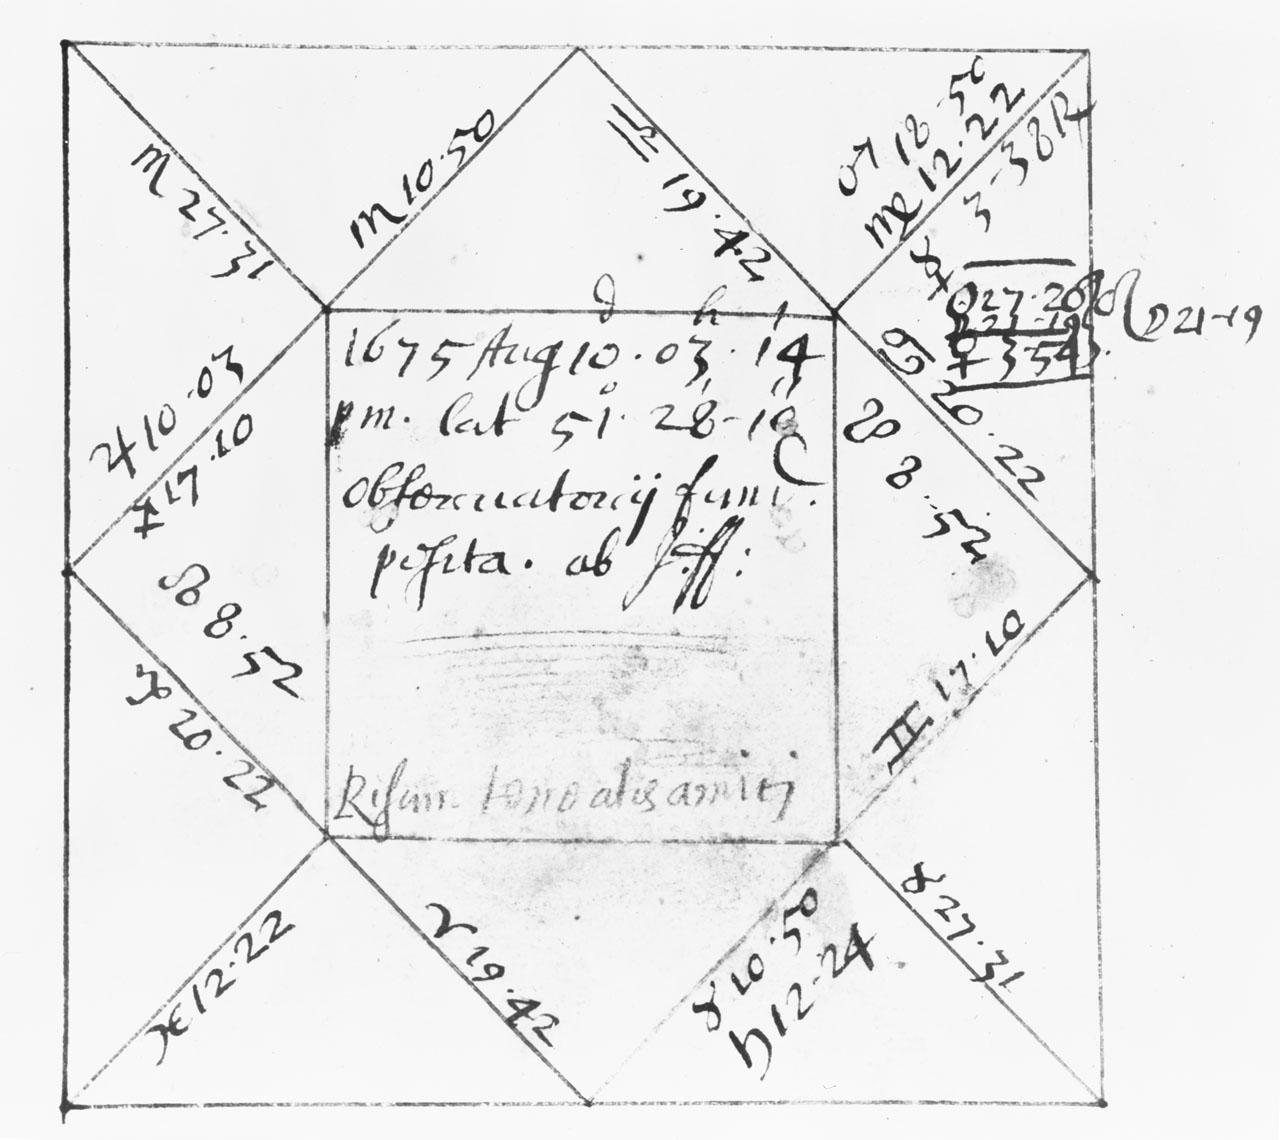 d h ′
1675 Aug 10. 03. 14
° ′ ″
pm. lat 51. 28-10
obseruatorij fund.
posita. ab J: ff:
Risum teneatis amici
♏ 10.50
♎ 19.42
♏ 27.31
♂ 18.50
♍ 12.22
☿ 3-38 ℞
☉ 27.26
☽ 21-19
♀ 3 54
♌ ☽ 21-19
♋ 20.22
☋ 8.52
♃ 10.03
♐ 17.10
☊ 8.52
♑ 20.22
♊ 17.10
♓ 12.22
♈ 19.42
♉ 10.50
♄ 12-24
♉ 27.31